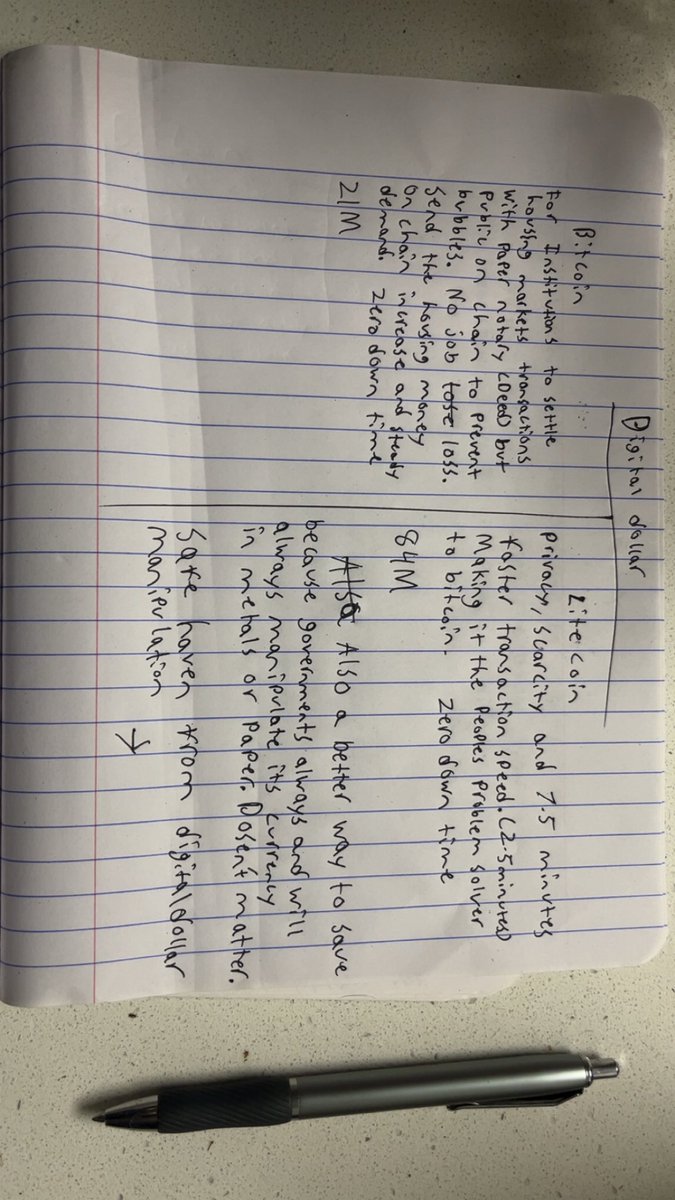 Digital dollar
Bitcoin
For Institutions to settle
housing markets transactions
with paper notary (Deed) but
public on chain to prevent
bubbles. No job loss.
Send the housing money
on chain increase and steady
demand. Zero down time
21M
Litecoin
privacy, scarcity and 7.5 minutes
faster transaction speed. (2.5 minutes)
Making it the Peoples Problem solver
to bitcoin. Zero down time
84M
Also a better way to save
because governments always and will
always manipulate its currency
in metals or paper. Dosen't matter.
Safe haven from digital dollar
manipulation →